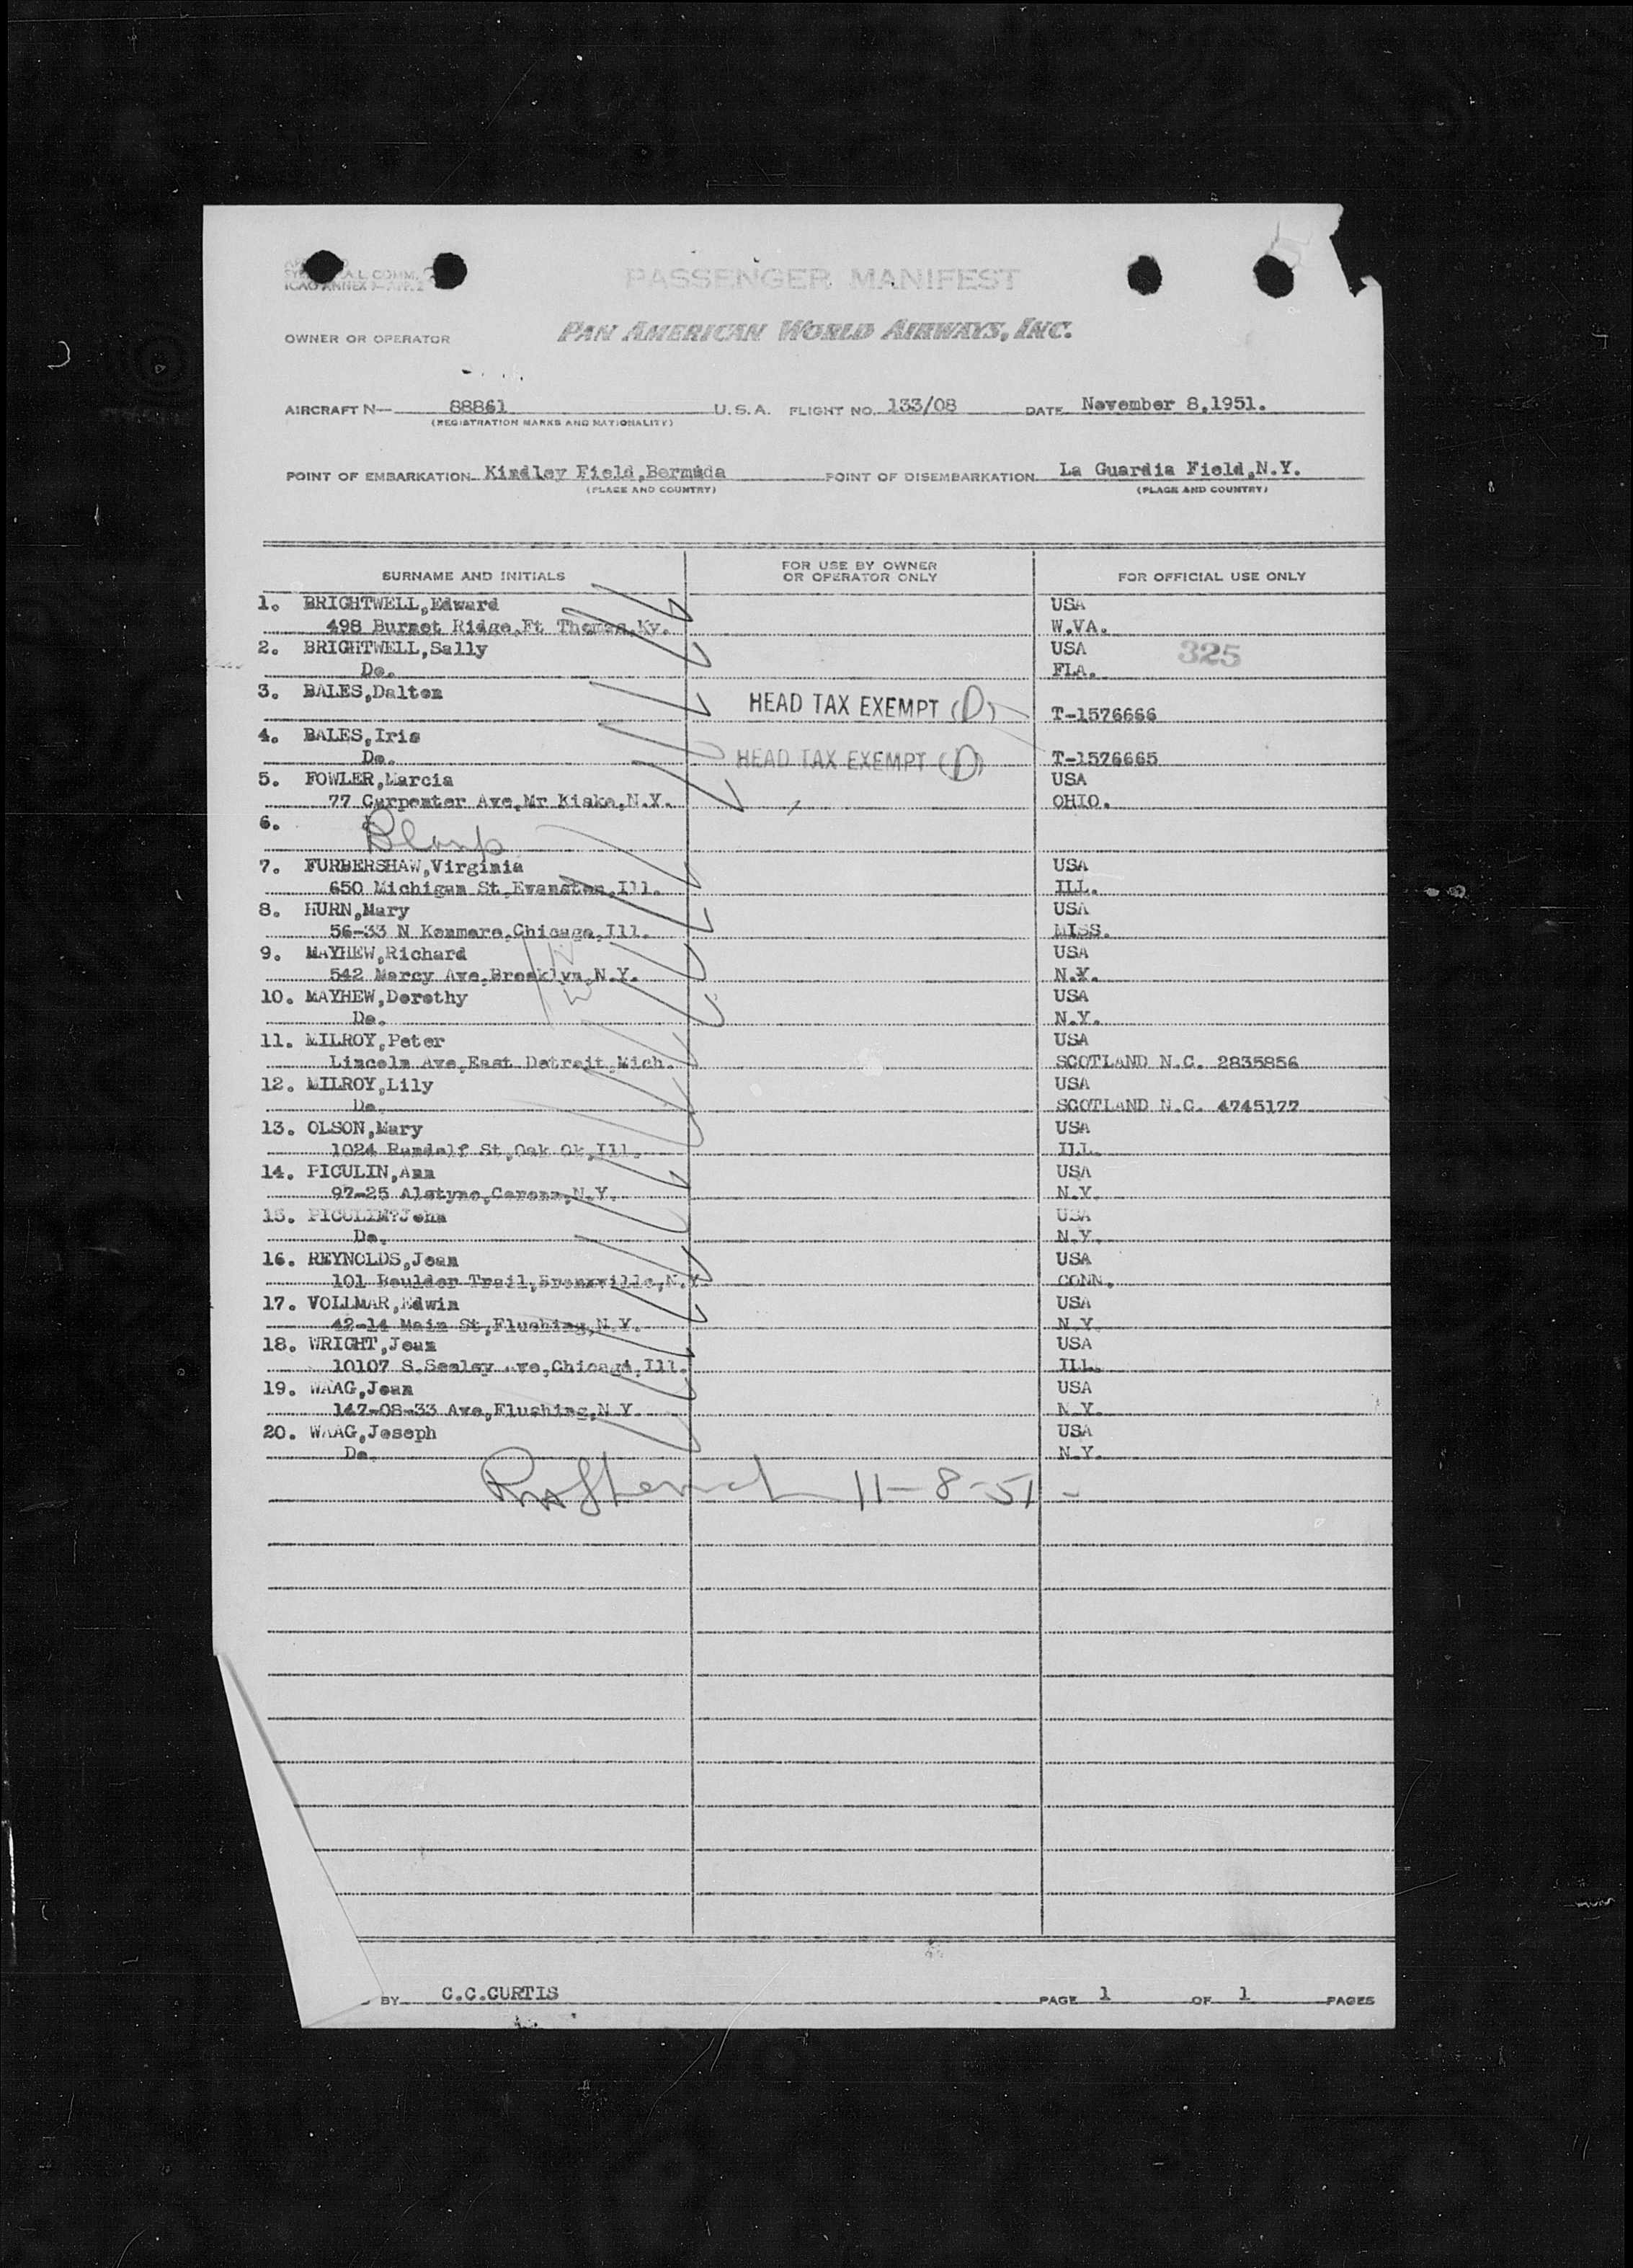 PASSENGER MANIFEST
ICAO ANNEX 9-APP. 2
OWNER OR OPERATOR PAN AMERICAN WORLD AIRWAYS, INC.
AIRCRAFT N— 88861 U. S. A. FLIGHT NO. 133/08 DATE November 8,1951.
(REGISTRATION MARKS AND NATIONALITY)
POINT OF EMBARKATION Kindley Field,Bermuda POINT OF DISEMBARKATION La Guardia Field,N.Y.
(PLACE AND COUNTRY) (PLACE AND COUNTRY)
SURNAME AND INITIALS FOR USE BY OWNER OR OPERATOR ONLY FOR OFFICIAL USE ONLY
1. BRIGHTWELL,Edward USA
498 Burnet Ridge,Ft Thomas,Ky. W.VA.
2. BRIGHTWELL,Sally USA 325
Do. FLA.
3. BALES,Dalton HEAD TAX EXEMPT (D)
T-1576666
4. BALES,Iris
Do. HEAD TAX EXEMPT (D) T-1576665
5. FOWLER,Marcia USA
77 Carpenter Ave,Mr Kiske,N.Y. OHIO.
6. Blank
7. FURBERSHAW,Virginia USA
650 Michigan St,Evanston,Ill. ILL.
8. HURN,Mary USA
56-33 N Kenmore,Chicago,Ill. MISS.
9. MAYHEW,Richard USA
542 Marcy Ave,Brooklyn,N.Y. N.Y.
10. MAYHEW,Dorothy USA
Do. N.Y.
11. MILROY,Peter USA
Lincoln Ave,East Detroit,Mich. SCOTLAND N.C. 2835856
12. MILROY,Lily USA
Do. SCOTLAND N.C. 4745177
13. OLSON,Mary USA
1024 Randolf St,Oak Ok,Ill. ILL.
14. PICULIN,Ann USA
97-25 Alstyne,Corona,N.Y. N.Y.
15. PICULIN?John USA
Do. N.Y.
16. REYNOLDS,Jean USA
101 Boulder Trail,Bronxville,N.Y. CONN.
17. VOLLMAR,Edwin USA
42-14 Main St,Flushing,N.Y. N.Y.
18. WRIGHT,Jean USA
10107 S.Seeley Ave,Chicago,Ill. ILL.
19. WAAG,Joan USA
147-08-33 Ave,Flushing,N.Y. N.Y.
20. WAAG,Joseph USA
Do. N.Y.
11-8-51
BY C.C.CURTIS PAGE 1 OF 1 PAGES